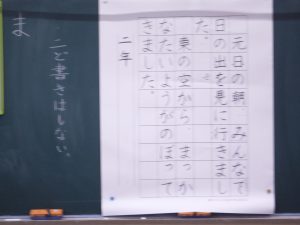 元日の朝、みんなで
日の出を見に行きまし
た。
東の空から、まっか
なたいようがのぼって
きました。
二年
二ど書きはしない。
ま